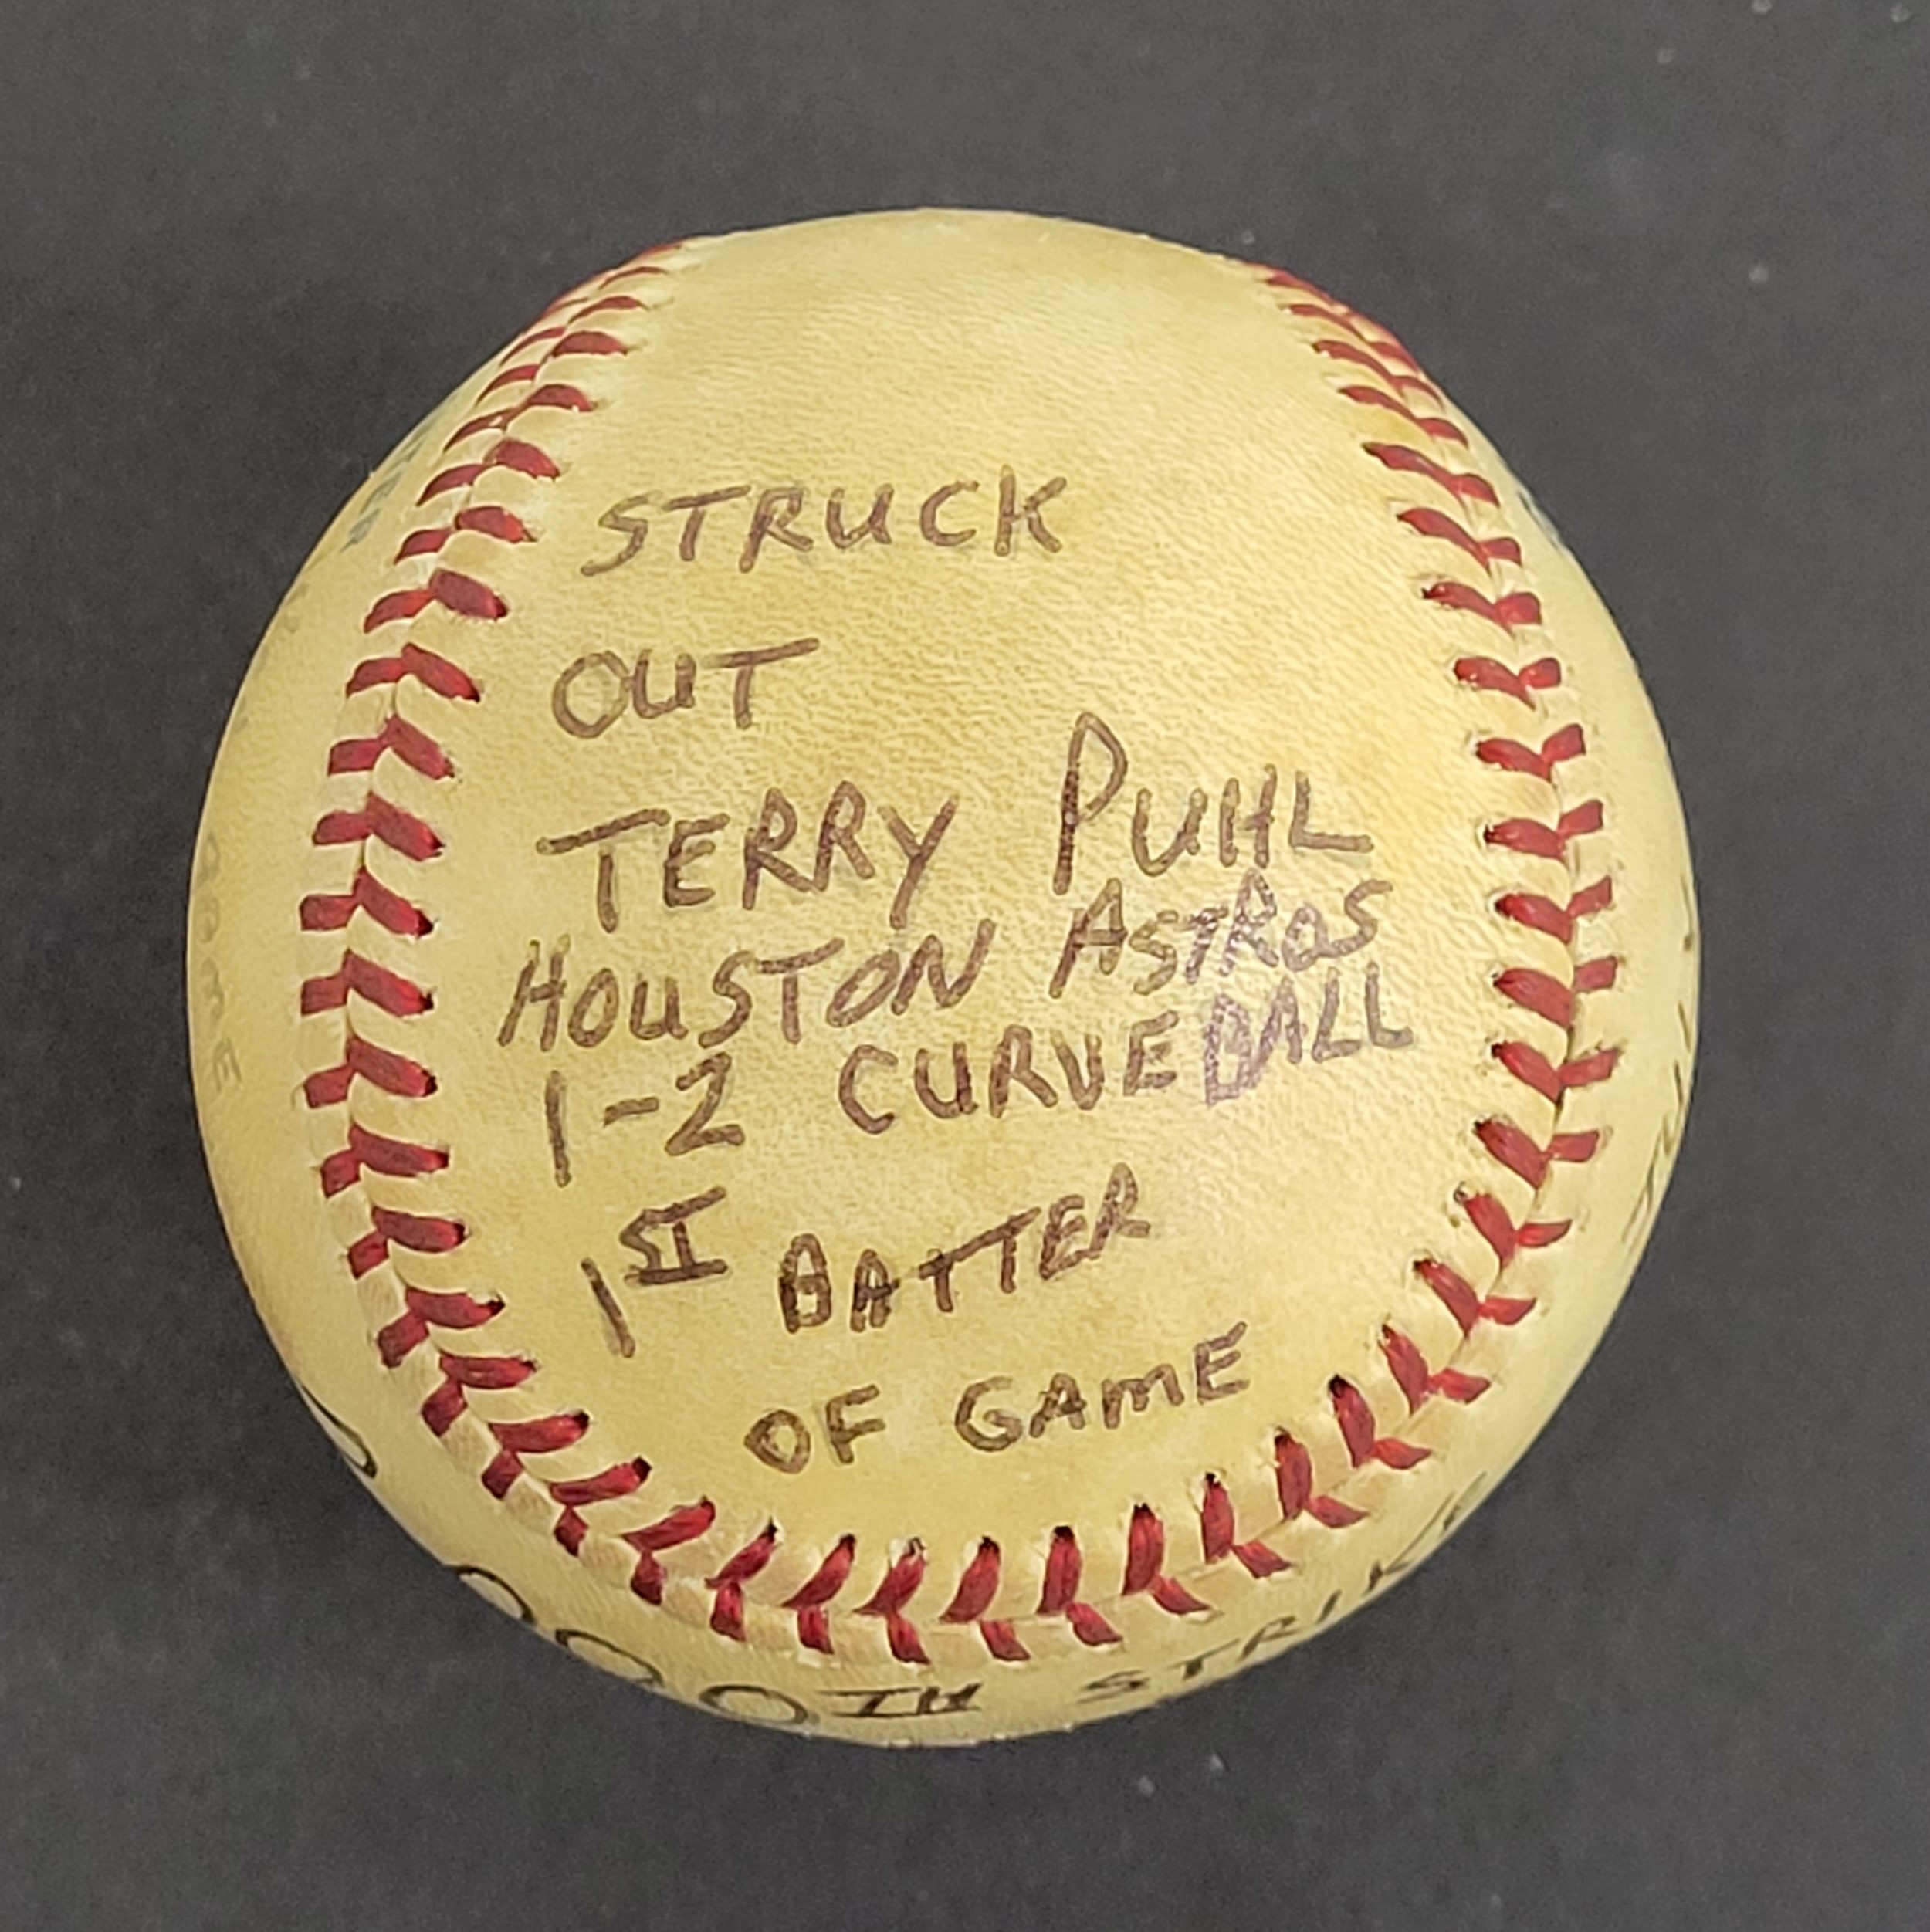 STRUCK
OUT
TERRY PUHL
HOUSTON ASTROS
1-2 CURVEBALL
1ST BATTER
OF GAME
000TH STRIKE
GAME